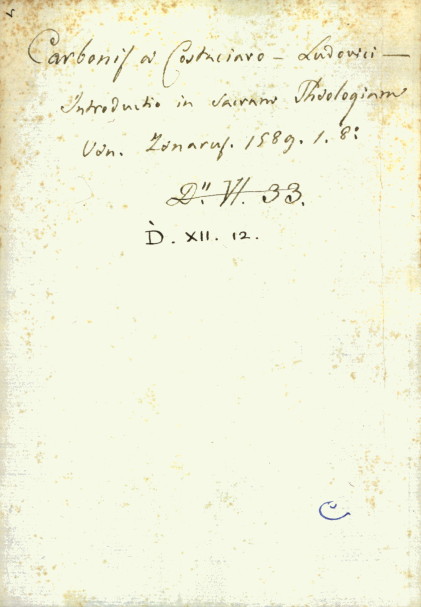 Carbonis a Costaciaro - Ludovici -
Introductio in Sacram Theologiam
Ven. Zenarus. 1589. 1. 8:
D". VI. 33.
D. XII. 12.